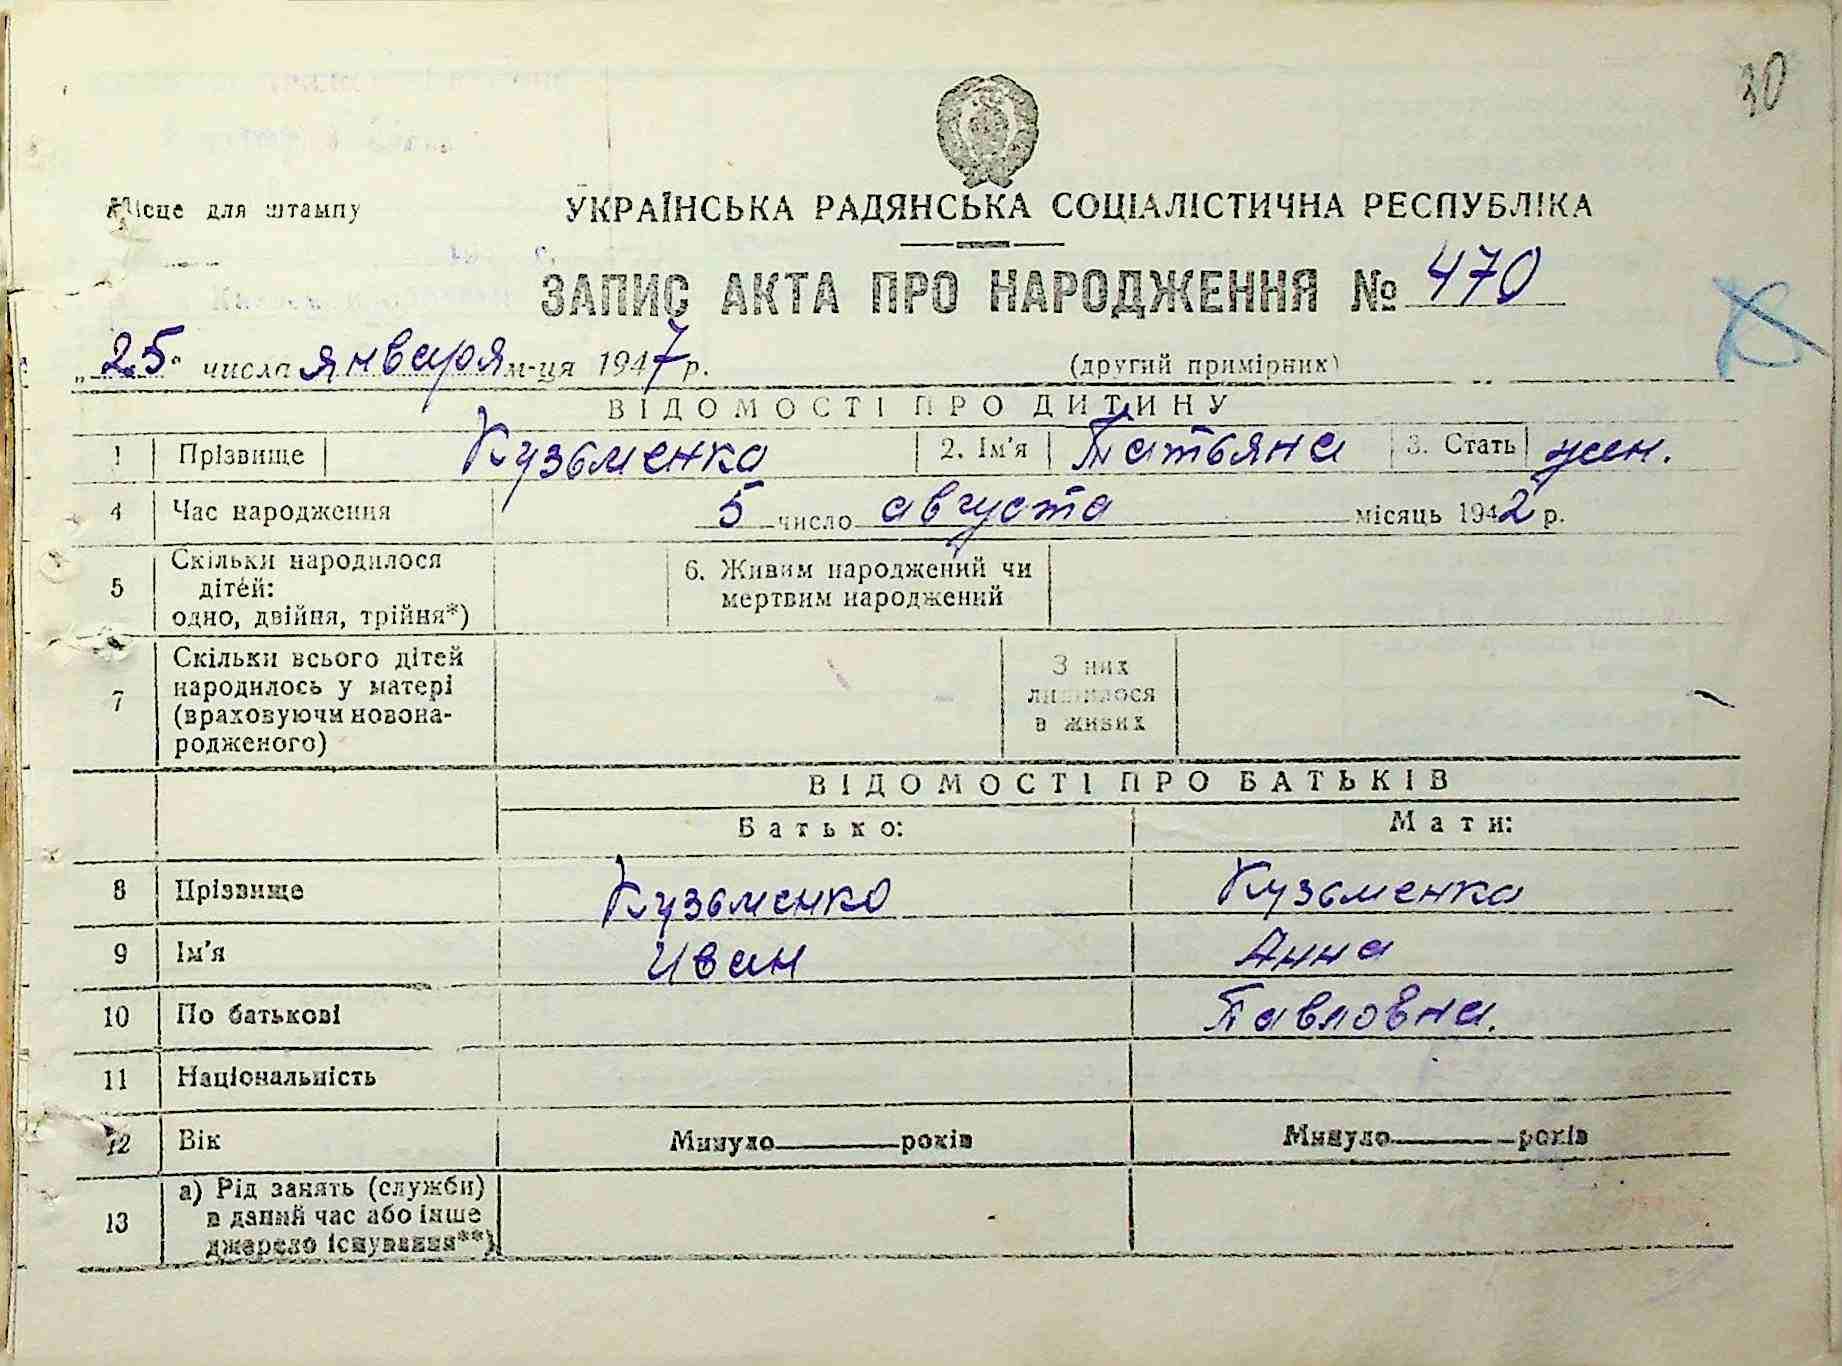 30
Місце для штампу
УКРАЇНСЬКА РАДЯНСЬКА СОЦІАЛІСТИЧНА РЕСПУБЛІКА
ЗАПИС АКТА ПРО НАРОДЖЕННЯ № 470
„25" числа января м-ця 1947 р. (другий примірник)
ВІДОМОСТІ ПРО ДИТИНУ
1 Прізвище Кузьменко 2. Ім'я Татьяна 3. Стать жен.
4 Час народження 5 число августа місяць 1942 р.
5 Скільки народилося дітей: одно, двійня, трійня*) 6. Живим народжений чи мертвим народжений
7 Скільки всього дітей народилось у матері (враховуючи новонародженого) З них лишилося в живих
ВІДОМОСТІ ПРО БАТЬКІВ
Батько: Мати:
8 Прізвище Кузьменко Кузьменко
9 Ім'я Иван Анна
10 По батькові Павловна.
11 Національність
12 Вік Минуло років Минуло років
13 а) Рід занять (служби) в даний час або інше джерело існування**)